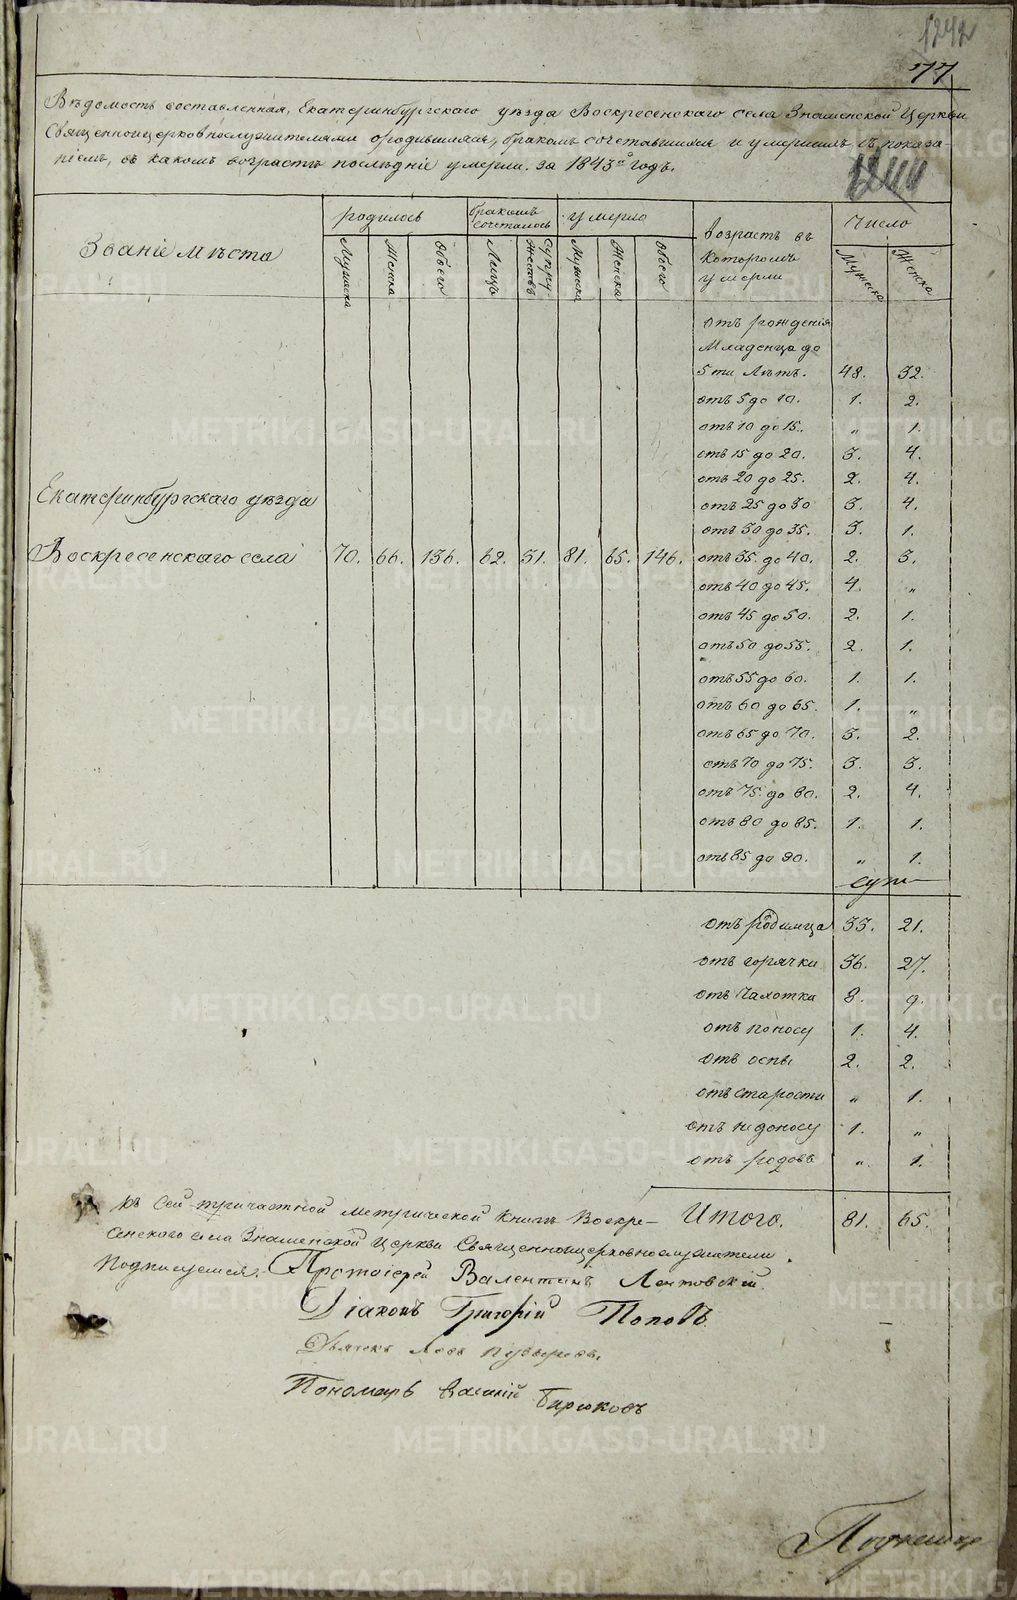 1242
77
Вѣдомость составленная, Екатеринбургскаго уѣзда Воскресенскаго села Знаменской Церкви
Священноицерковнослужителями ородившихся, бракомъ сочетавшихся и умершихъ съ показа-
ніемъ, въ какомъ возрастѣ послѣдніе умерли. за 1843й годъ.
1244
Званіе мѣста
родилось
бракомъ сочеталось
умерло
возрастъ въ которомъ умерли
Число
Мужеска
Женска
Обоего
Лицъ
Супружествъ
Мужеска
Женска
Обоего
Мужеска
Женска
отъ рожденія
Младенца до
5ти лѣтъ. 48. 32.
отъ 5 до 10. 1. 2.
отъ 10 до 15. „ 1.
отъ 15 до 20. 3. 4.
отъ 20 до 25. 2. 4.
Екатеринбургскаго уѣзда
отъ 25 до 30 3. 4.
отъ 30 до 35. 3. 1.
Воскресенскаго села 70. 66. 136. 62. 31. 81. 65. 146. отъ 35. до 40. 2. 3.
отъ 40 до 45. 4. „
отъ 45 до 50. 2. 1.
отъ 50 до 55. 2. 1.
отъ 55 до 60. 1. 1.
отъ 60 до 65. 1. „
отъ 65 до 70. 3. 2.
отъ 70 до 75. 3. 3.
отъ 75. до 80. 2. 4.
отъ 80 до 85. 1. 1.
отъ 85 до 90. „ 1.
отъ родимца 33. 21.
отъ горячки 36. 27.
отъ чахотки 8. 9.
отъ поносу 1. 4.
отъ оспы 2. 2.
отъ старости „ 1.
отъ недоносу 1. „
отъ родовъ „ 1.
Итого. 81. 65.
Къ сей тричастной метрической книгѣ Воскре-
сенского села Знаменской Церкви Священноицерковнослужители
Подписуемся. Протоіерей Валентинъ Лентовскій.
Діаконъ Григорій Поповъ.
Дьячекъ
Пономарь Василій Бирюковъ
METRIKI.GASO-URAL.RU